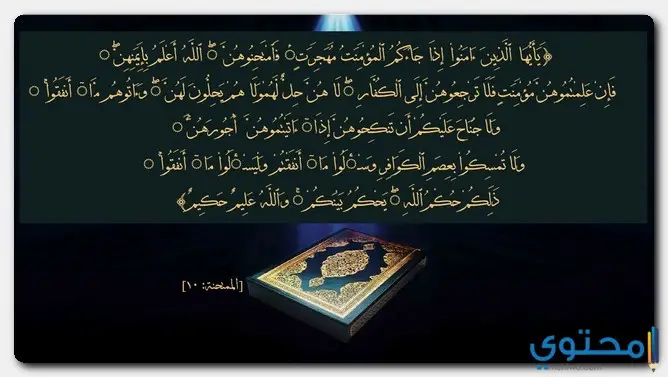 ﴿يَٰٓأَيُّهَا ٱلَّذِينَ ءَامَنُوٓاْ إِذَا جَآءَكُمُ ٱلۡمُؤۡمِنَٰتُ مُهَٰجِرَٰتٖ فَٱمۡتَحِنُوهُنَّۖ ٱللَّهُ أَعۡلَمُ بِإِيمَٰنِهِنَّۖ
فَإِنۡ عَلِمۡتُمُوهُنَّ مُؤۡمِنَٰتٖ فَلَا تَرۡجِعُوهُنَّ إِلَى ٱلۡكُفَّارِۖ لَا هُنَّ حِلّٞ لَّهُمۡ وَلَا هُمۡ يَحِلُّونَ لَهُنَّۖ وَءَاتُوهُم مَّآ أَنفَقُواْۚ
وَلَا جُنَاحَ عَلَيۡكُمۡ أَن تَنكِحُوهُنَّ إِذَآ ءَاتَيۡتُمُوهُنَّ أُجُورَهُنَّۚ
وَلَا تُمۡسِكُواْ بِعِصَمِ ٱلۡكَوَافِرِ وَسۡـَٔلُواْ مَآ أَنفَقۡتُمۡ وَلۡيَسۡـَٔلُواْ مَآ أَنفَقُواْۚ
ذَٰلِكُمۡ حُكۡمُ ٱللَّهِۖ يَحۡكُمُ بَيۡنَكُمۡۚ وَٱللَّهُ عَلِيمٌ حَكِيمٞ﴾
[الممتحنة: ١٠]
محتوي